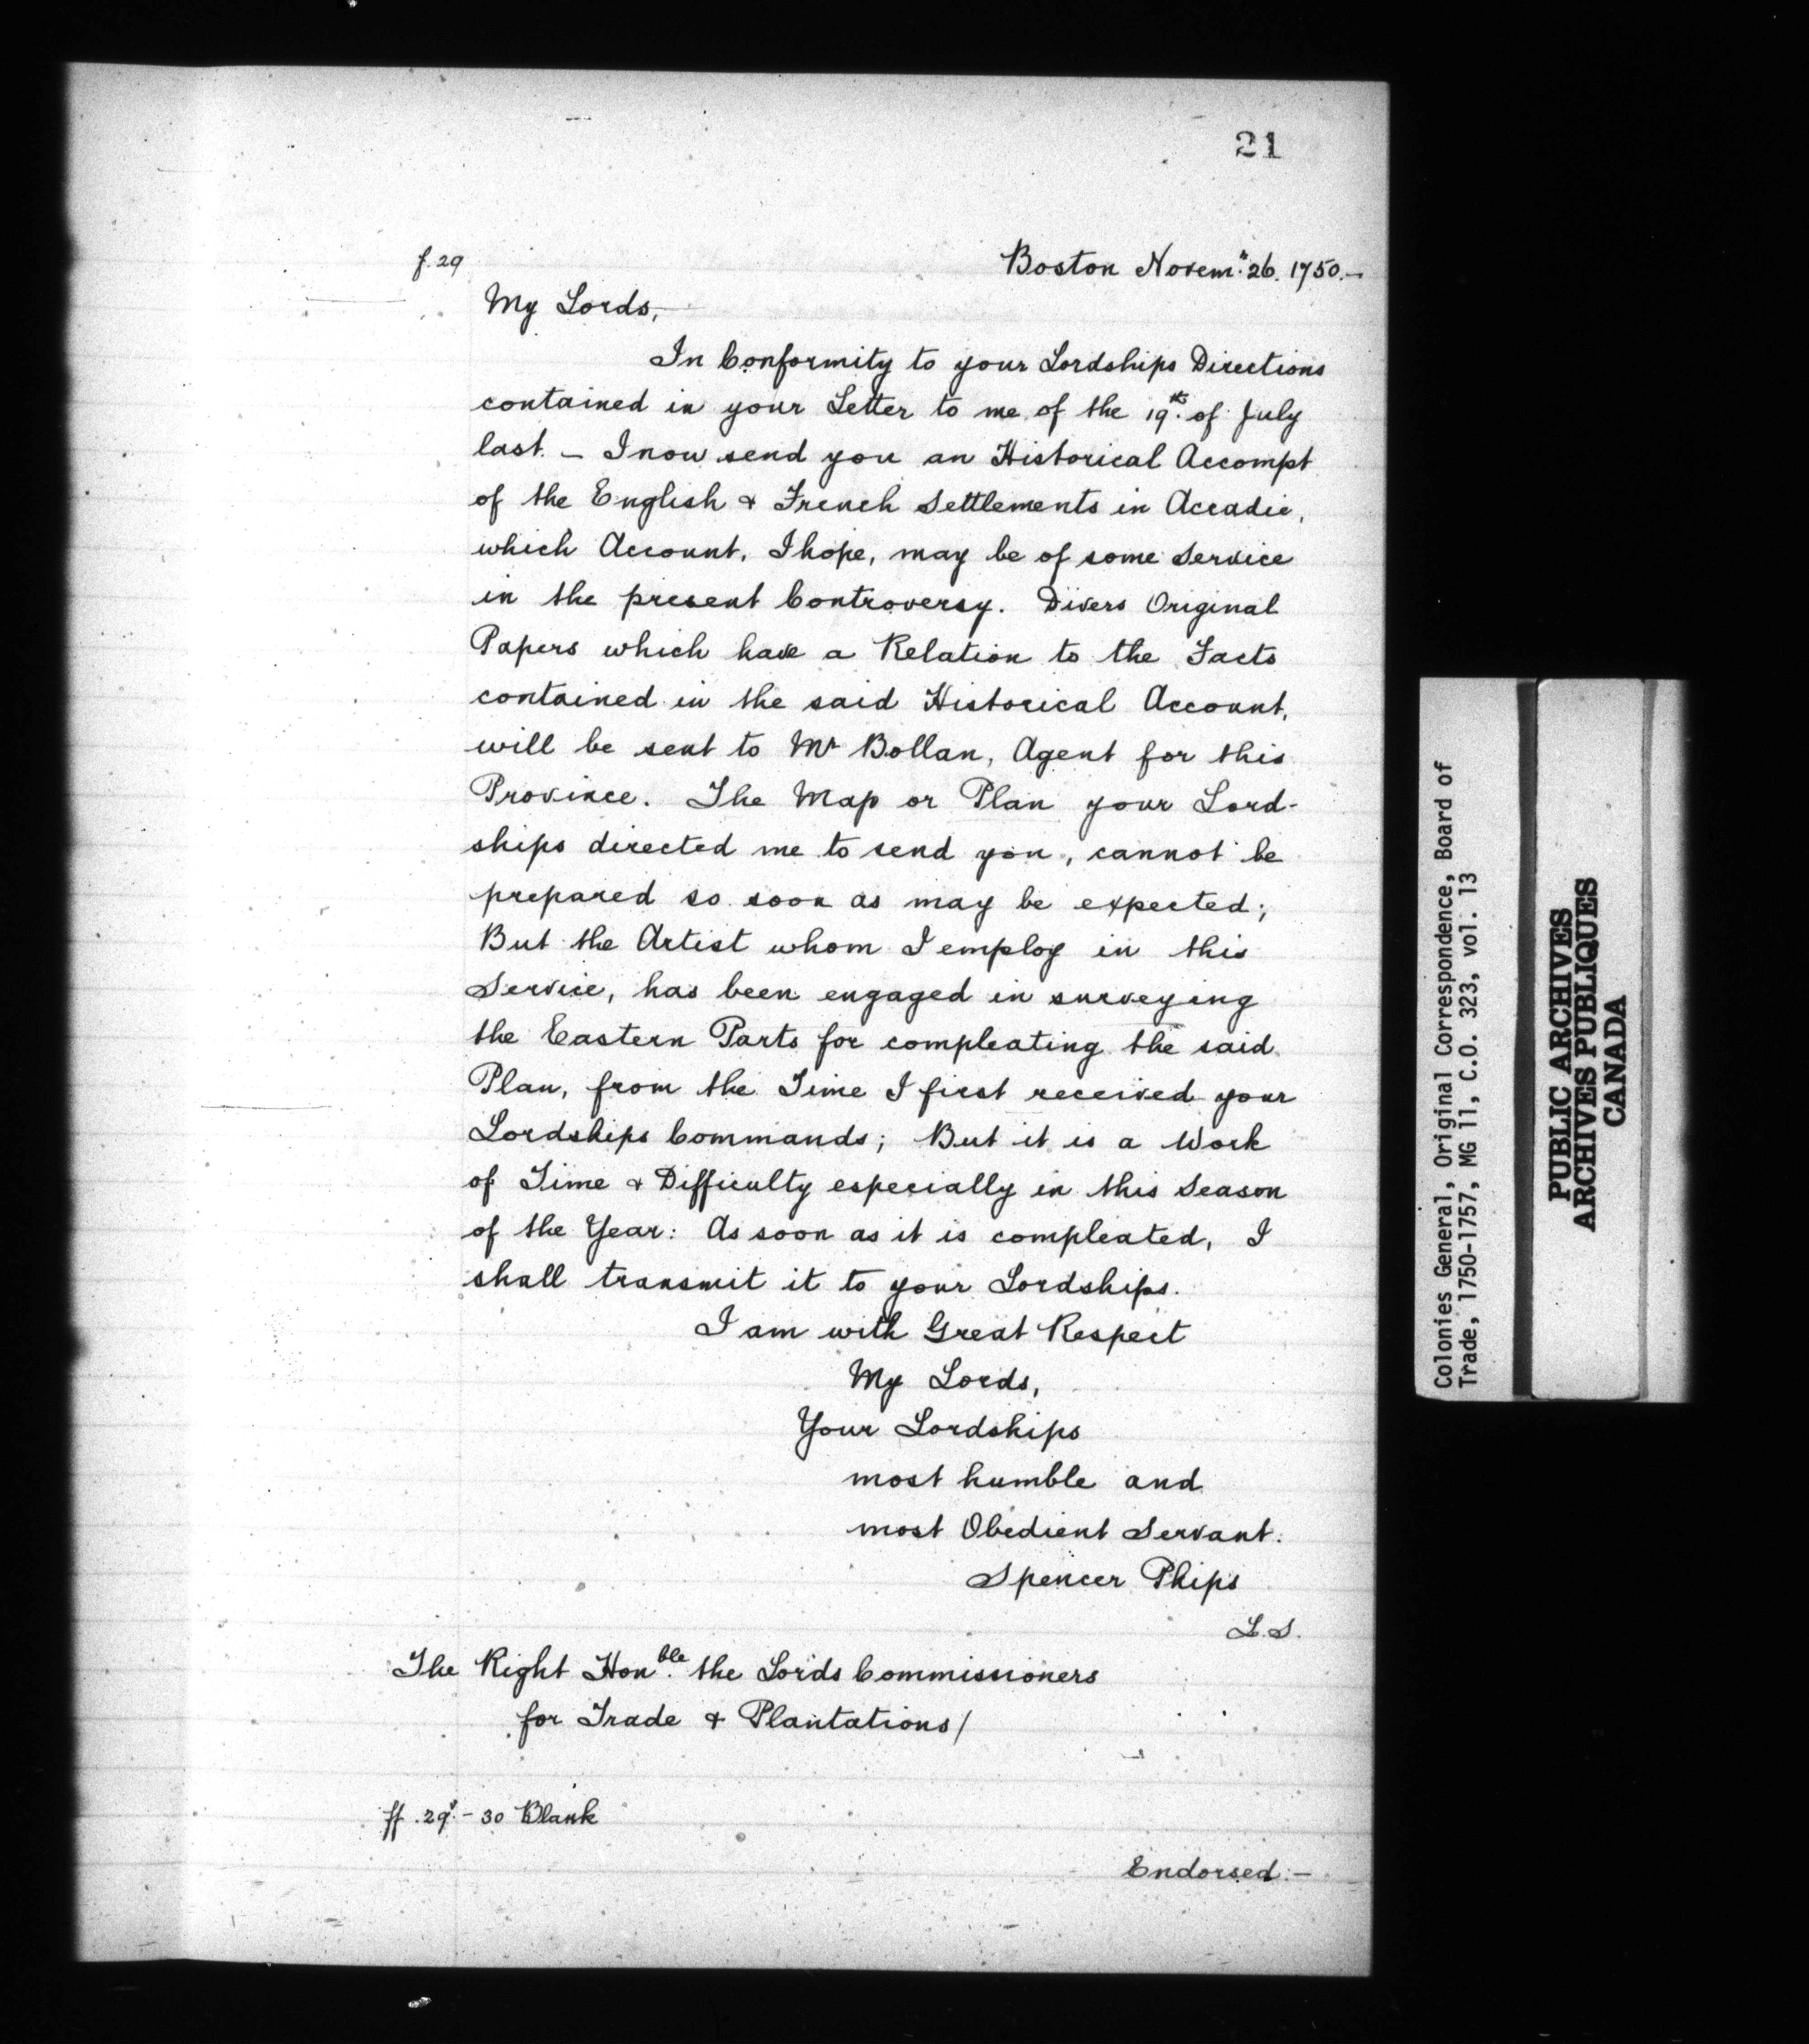 21
f. 29
Boston Novemr. 26. 1750.—
My Lords,
In Conformity to your Lordships Directions
contained in your Letter to me of the 19th. of July
last. — I now send you an Historical Accompt
of the English & French Settlements in Accadie,
which Account, I hope, may be of some Service
in the present Controversy. Divers Original
Papers which have a Relation to the Facts
contained in the said Historical Account,
will be sent to Mr Bollan, Agent for this
Province. The Map or Plan your Lord-
ships directed me to send you, cannot be
prepared so soon as may be expected;
But the Artist whom I employ in this
Service, has been engaged in surveying
the Eastern Parts for compleating the said
Plan, from the Time I first received your
Lordships Commands; But it is a Work
of Time & Difficulty especially in this Season
of the Year: As soon as it is compleated, I
shall transmit it to your Lordships.
I am with Great Respect
My Lords,
Your Lordships
most humble and
most Obedient Servant.
Spencer Phips
L.S.
The Right Honble. the Lords Commissioners
for Trade & Plantations/
ff. 29v. – 30 Blank
Endorsed:—
Colonies General, Original Correspondence, Board of
Trade, 1750-1757, MG 11, C.O. 323, vol. 13
PUBLIC ARCHIVES
ARCHIVES PUBLIQUES
CANADA